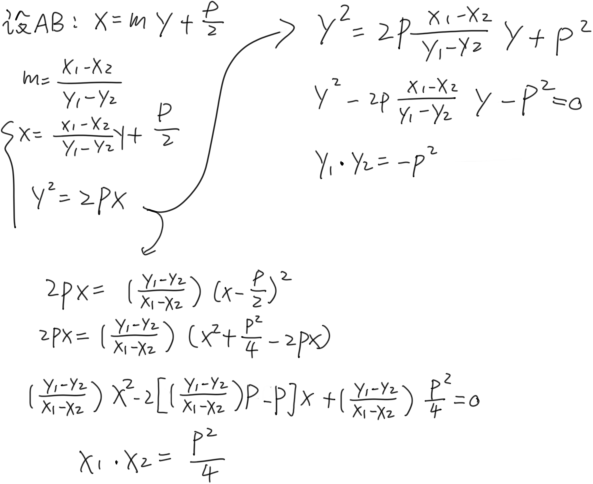 设AB: X=mY+P/2
m=(X₁-X₂)/(Y₁-Y₂)
{X=(X₁-X₂)/(Y₁-Y₂)Y+P/2
Y²=2PX
Y²=2P(X₁-X₂)/(Y₁-Y₂)Y+P²
Y²-2P(X₁-X₂)/(Y₁-Y₂)Y-P²=0
Y₁·Y₂=-P²
2PX=((Y₁-Y₂)/(X₁-X₂))(X-P/2)²
2PX=((Y₁-Y₂)/(X₁-X₂))(X²+P²/4-2PX)
((Y₁-Y₂)/(X₁-X₂))X²-2[((Y₁-Y₂)/(X₁-X₂))P-P]X+((Y₁-Y₂)/(X₁-X₂))P²/4=0
X₁·X₂=P²/4